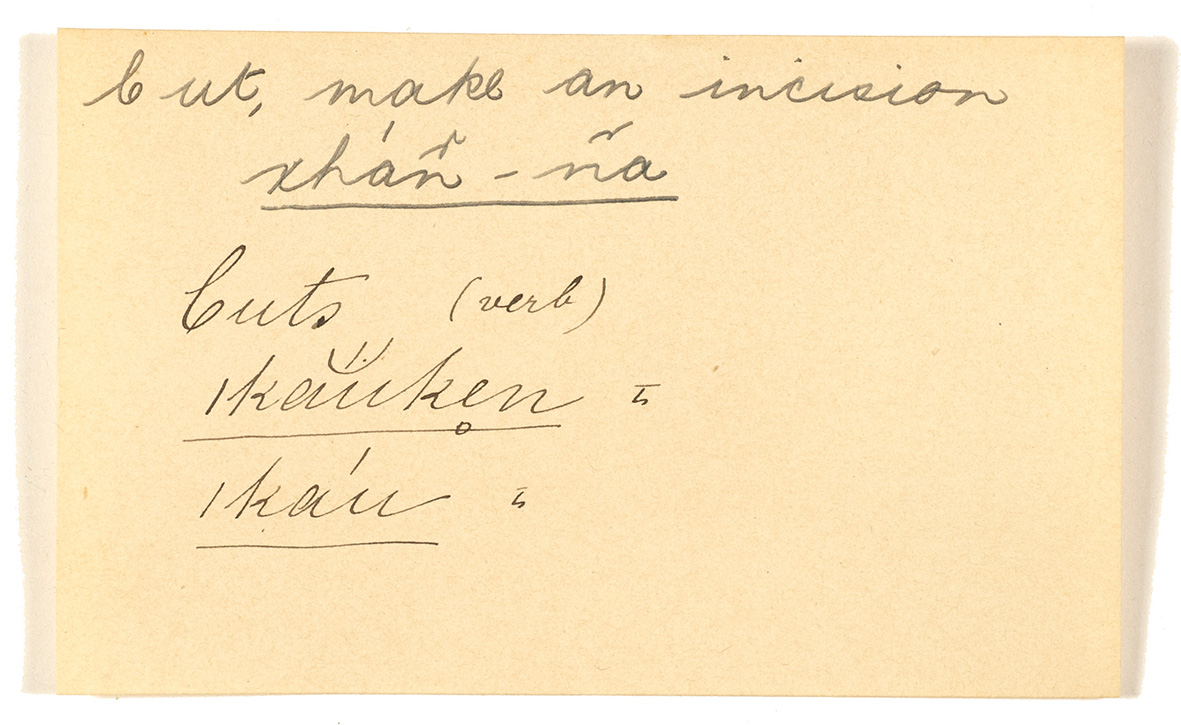 Cut, make an incision
xháň - ňa
Cuts (verb)
ǀkaŭ́ke̥n
ǀkáu